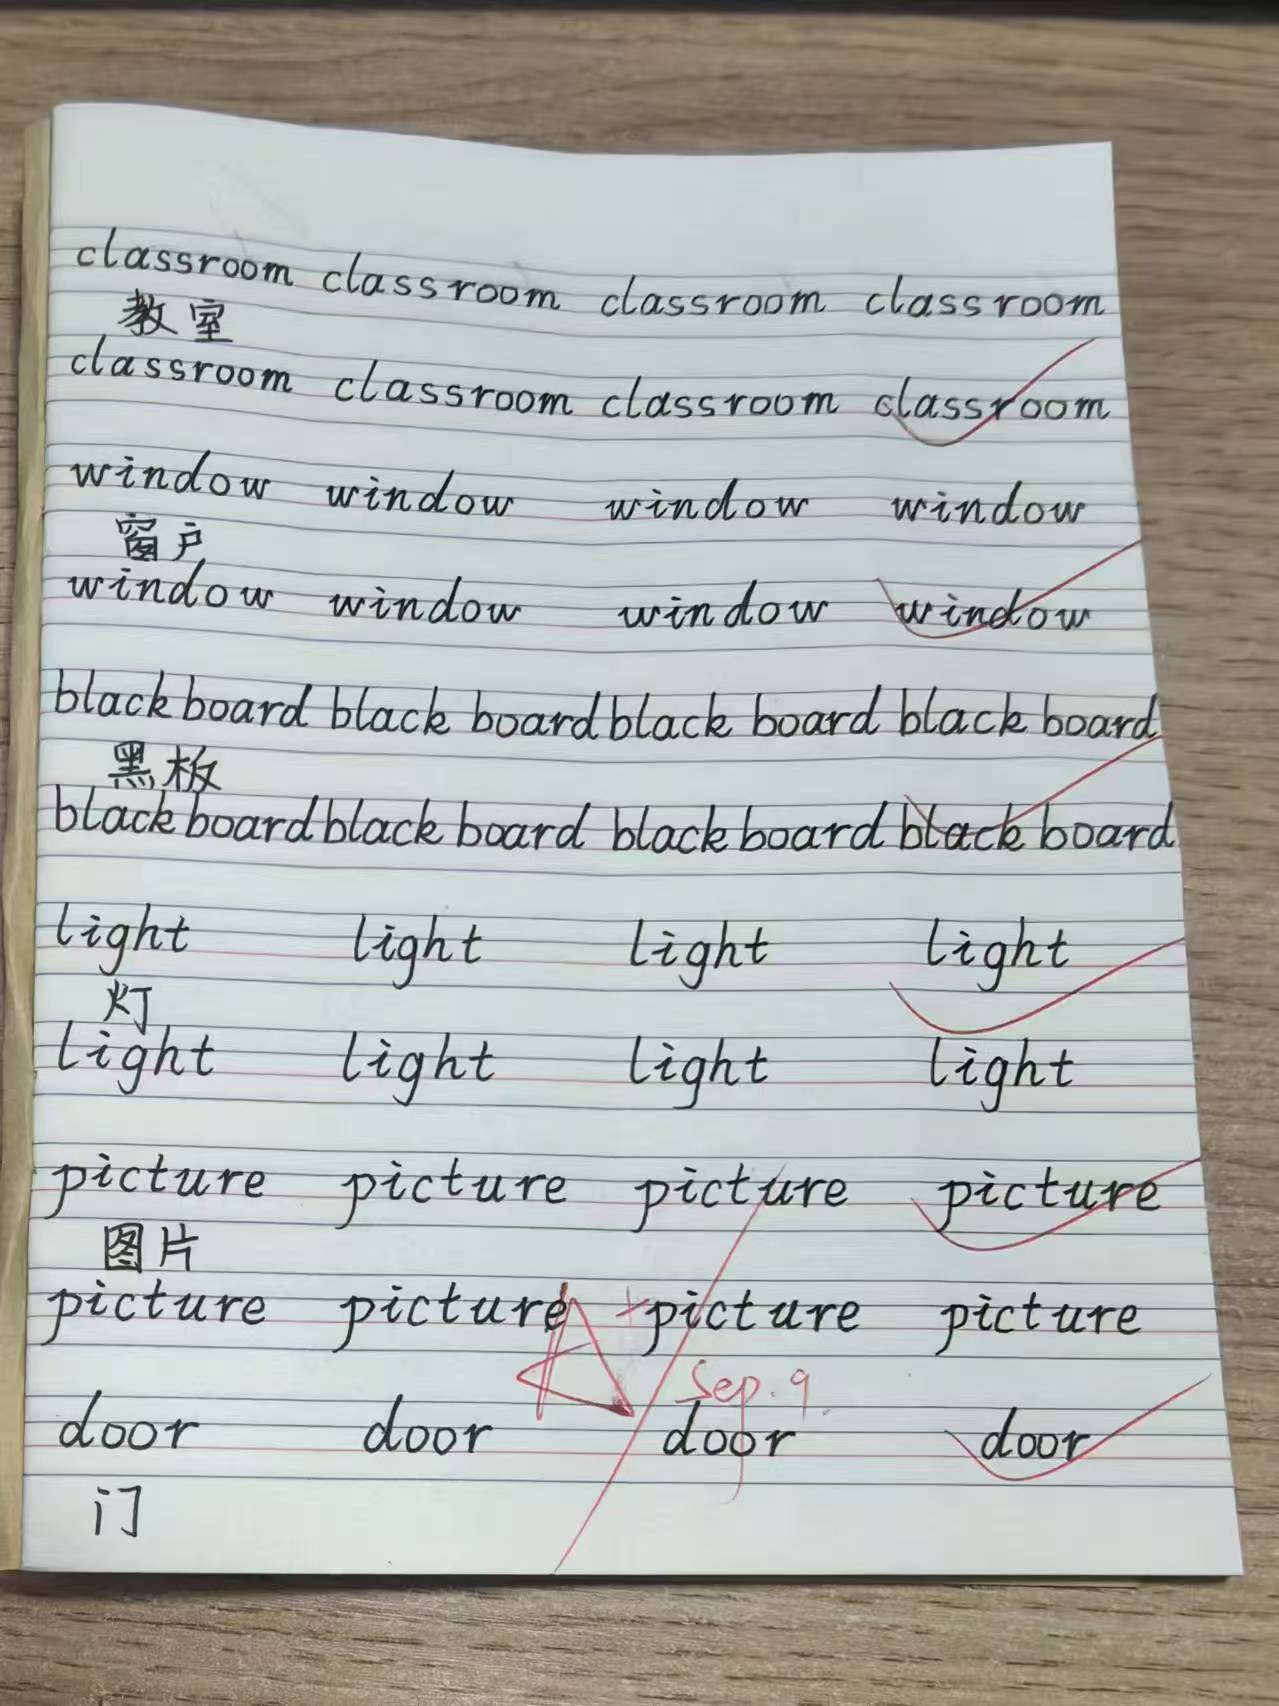 classroom classroom classroom classroom
教室
classroom classroom classroom classroom
window window window window
窗户
window window window window
blackboard blackboard blackboard blackboard
黑板
blackboard blackboard blackboard blackboard
light light light light
灯
light light light light
picture picture picture picture
图片
picture picture picture picture
A+
Sep. 9
door door door door
门